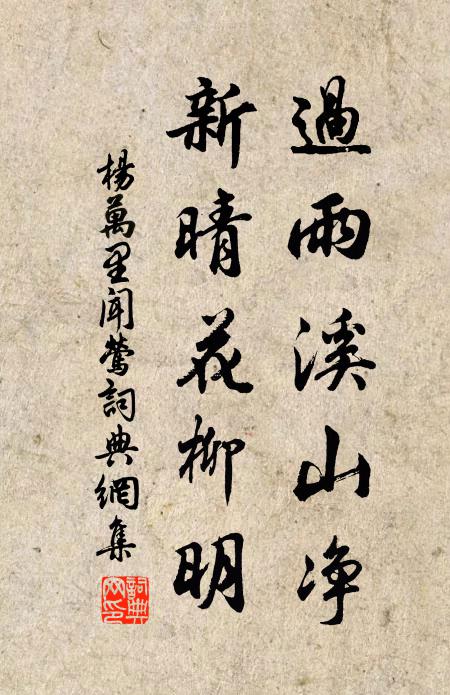 過雨溪山净
新晴花柳明
楊萬里聞鶯詞典網集
詞典网印